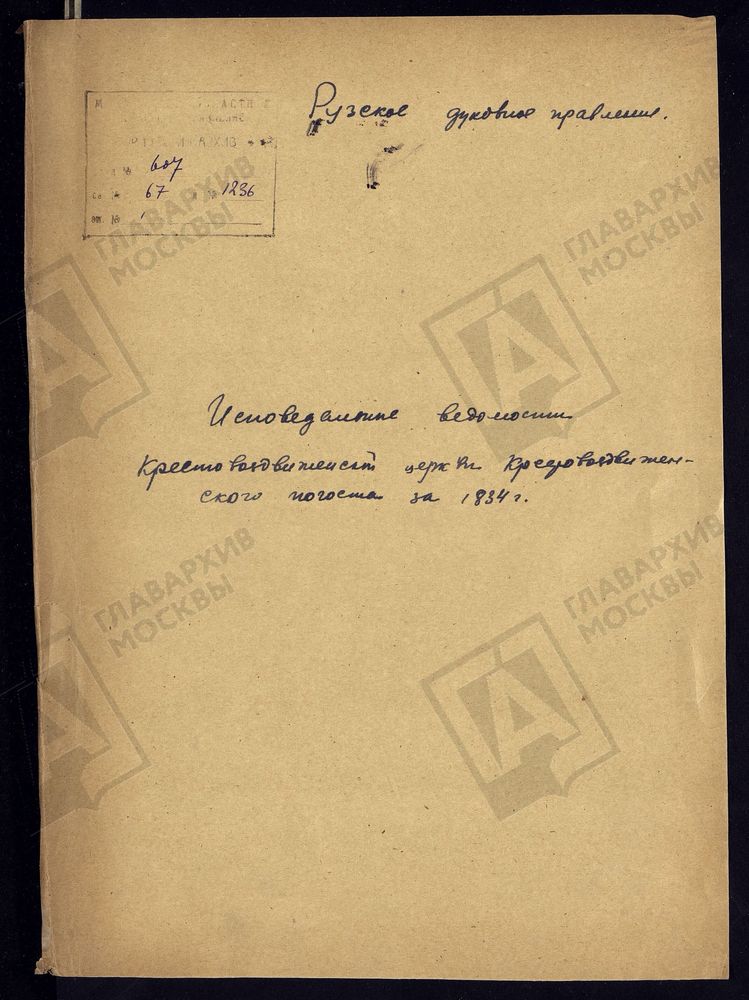 Рузское духовное правление.
607
67 1236
Исповедальные ведомости
Крестовоздвиженской церкви Крестовоздвижен-
ского погоста за 1834 г.
ГЛАВАРХИВ
МОСКВЫ
ГЛАВАРХИВ
МОСКВЫ
ГЛАВАРХИВ
МОСКВЫ
ГЛАВАРХИВ
МОСКВЫ